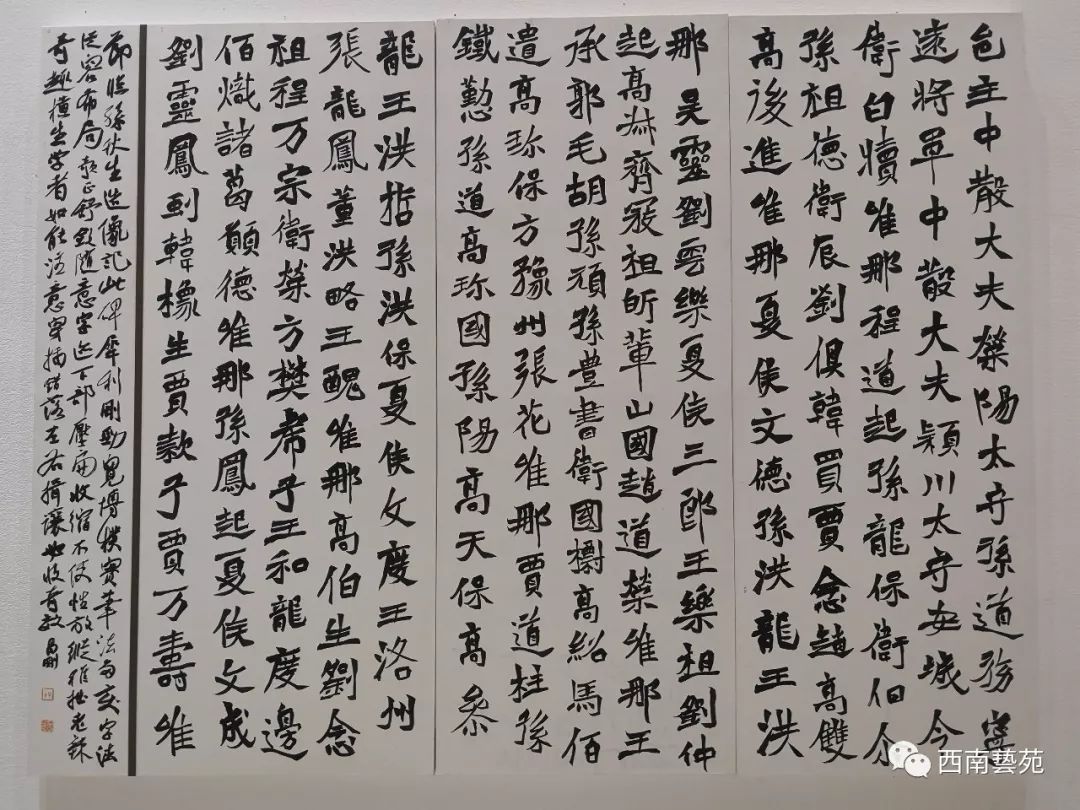 邑主中散大夫滎陽太守孫道務寧
遠將軍中散大夫潁川太守安城令
衛白犢維那程道起孫龍保衛伯
孫祖德衛辰劉俱韓買賈念趙高雙
高後進維那夏侯文德孫洪龍王洪
那吳靈劉雲樂夏侯三郎王樂祖劉仲
起高齊祖昕輦山國趙道榮維那王
承郭毛胡孫頑孫豊書衛國高紹馬佰
遣高珎保方豫州張花維那賈道柱孫
鐵勤孫道高珎國孫陽高天保高参
龍王洪哲孫洪保夏侯文度王洛州
張龍鳳董洪略王醜維那高伯生劉念
祖程万宗衛榮方樊希子王和龍度邊
佰熾諸葛顛德維那孫鳳起夏侯文成
劉靈鳳劉韓橡生賈款子賈万壽維
節臨孫秋生造像記此碑犀利剛勁寬博樸實筆法字法
從容布局敬正舒隨意字下部壓扁收縮不使恣放縱
奇趣横生學者如能注意穿插錯落左右揖讓必收奇效
西南藝苑